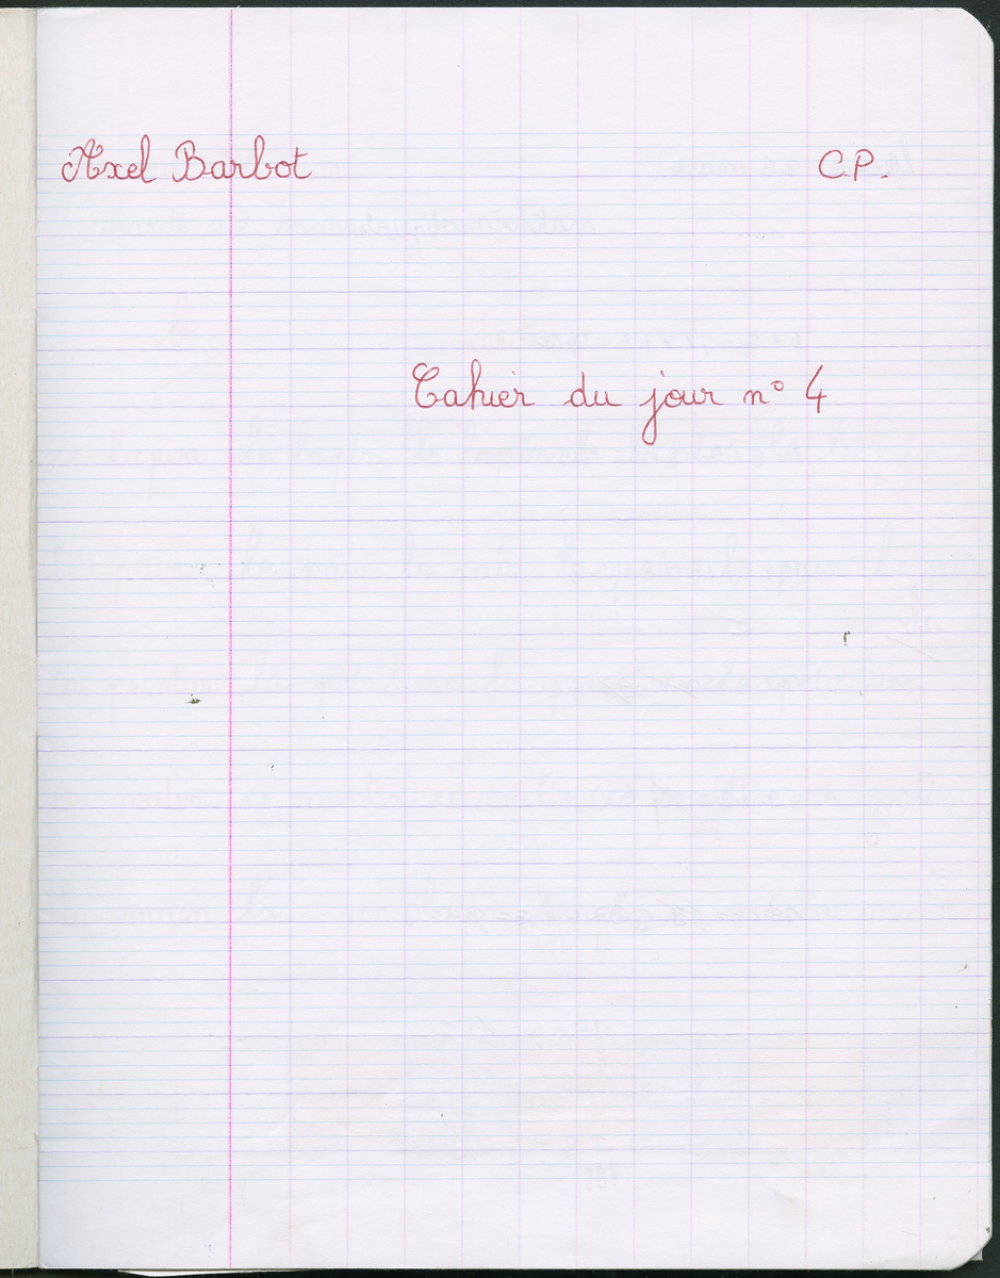 Axel Barbot C.P.
Cahier du jour n° 4